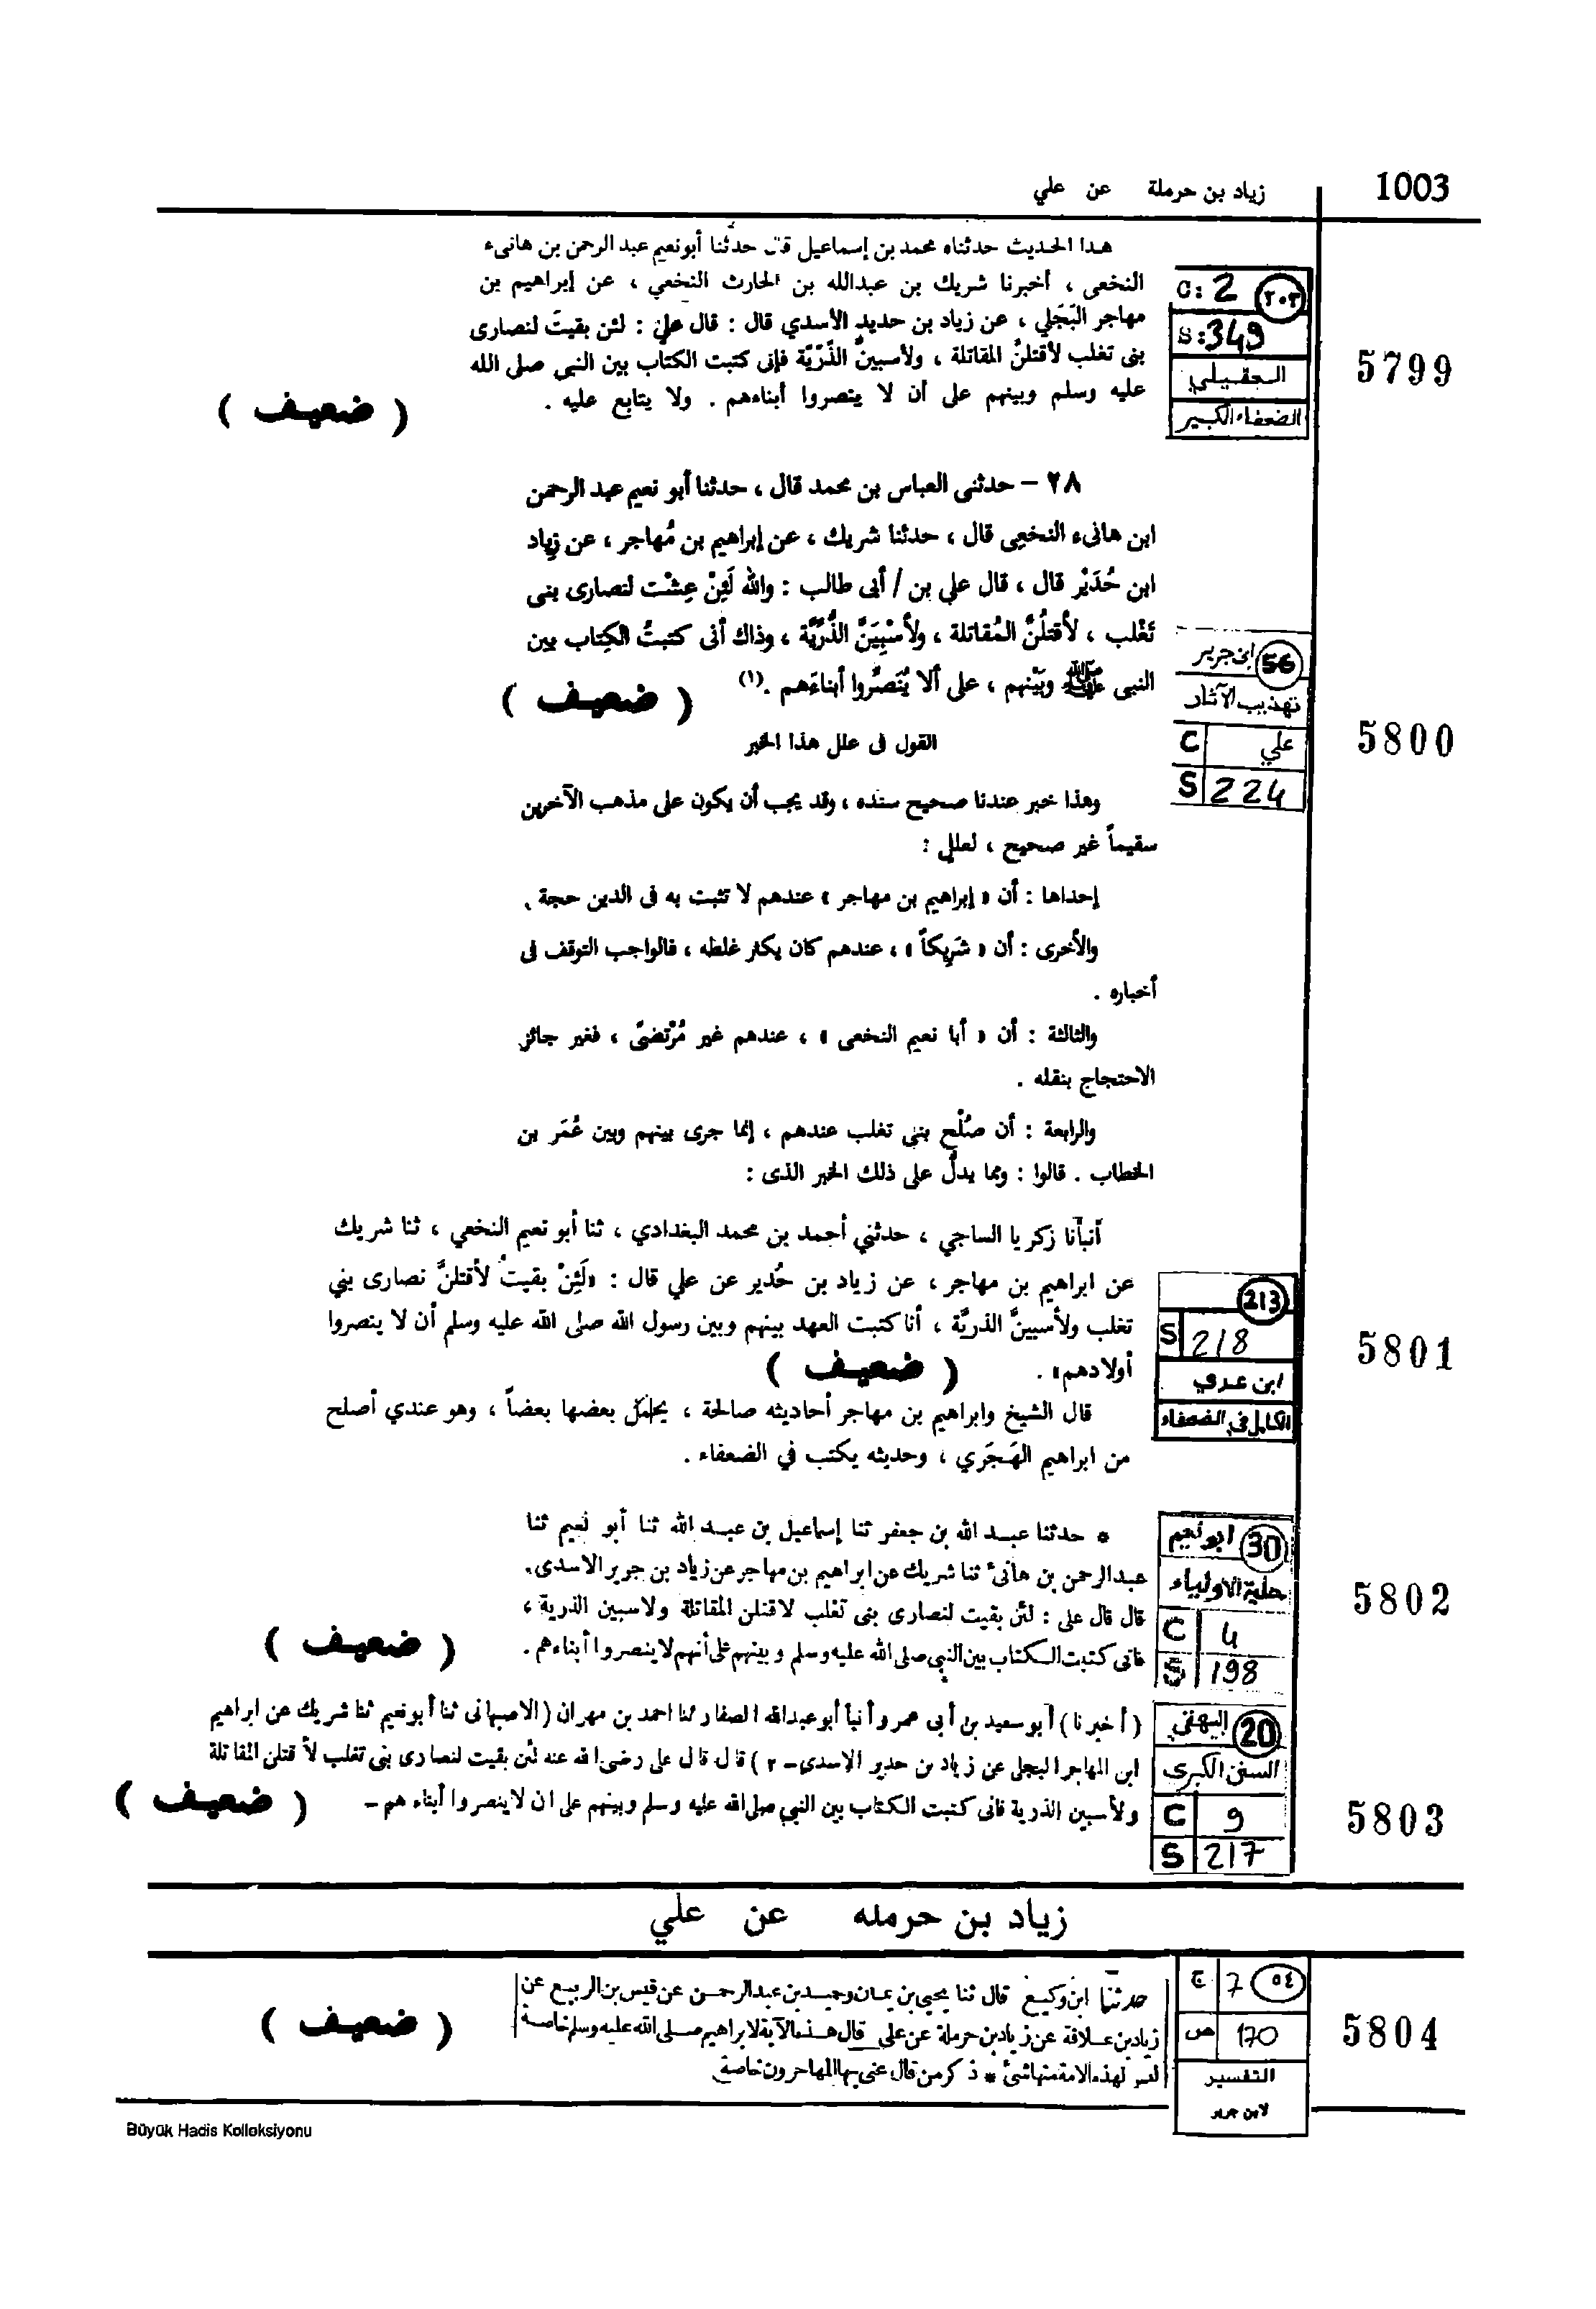 زياد بن حرملة عن علي
1003
هذا الحديث حدثناه محمد بن إسماعيل قال حدثنا أبونعيم عبد الرحمن بن هانىء
النخعى ، أخبرنا شريك بن عبدالله بن الحارث النخعي ، عن إبراهيم بن
مهاجر البَجَلي ، عن زياد بن حديد الأسدي قال : قال علي : لئن بقيتَ لنصارى
بنى تغلب لأقتلنَّ المقاتلة ، ولأسبينَّ الذّرّيّة فإنى كتبت الكتاب بين النبى صلى الله
عليه وسلم وبينهم على أن لا ينصروا أبناءهم . ولا يتابع عليه .
( ضعيف )
C: 2 ٢٠٣
S: 349
العقيلي
الضعفاء الكبير
5799
٢٨ – حدثنى العباس بن محمد قال ، حدثنا أبو نعيم عبد الرحمن
ابن هانىء النخعِى قال ، حدثنا شريك ، عن إبراهيم بن مُهاجر ، عن زِياد
ابن حُدَيْر قال ، قال علي بن / أبى طالب : والله لَئِنْ عِشْت لنصارى بنى
تَغْلب ، لأقتلُنَّ المُقاتلة ، ولأسْبِيَنَّ الذُّرِّيَّة ، وذاك أنى كتبتُ الكِتاب بين
النبى ﷺ وبَيْنهم ، على ألا يُنَصِّروا أبناءَهم .(١)
( ضعيف )
56 ابن جرير
تهذيب الآثار
علي C
224 S
5800
القول فى علل هذا الخبر
وهذا خبر عندنا صحيح سنده ، وقد يجب أن يكون على مذهب الآخرين
سقيماً غير صحيح ، لعللٍ :
إحداها : أن « إبراهيم بن مهاجر » عندهم لا تثبت به فى الدين حجة .
والأخرى : أن « شَرِيكاً » ، عندهم كان يكثر غلطه ، فالواجب التوقف فى
أخباره .
والثالثة : أن « أبا نعيم النخعى » ، عندهم غير مُرْتضىً ، فغير جائز
الاحتجاج بنقله .
والرابعة : أن صُلْح بنى تغلب عندهم ، إنما جرى بينهم وبين عُمَر بن
الخطاب . قالوا : ومما يدلّ على ذلك الخبر الذى :
أنبأنا زكريا الساجي ، حدثني أحمد بن محمد البغدادي ، ثنا أبو نعيم النخعي ، ثنا شريك
عن ابراهيم بن مهاجر ، عن زياد بن حُدير عن علي قال : «لَئِنْ بقيتُ لأقتلنَّ نصارى بني
تغلب ولأسبينَّ الذريَّة ، أنا كتبت العهد بينهم وبين رسول الله صلى الله عليه وسلم أن لا ينصروا
أولادهم» .
( ضعيف )
213
S 218
ابن عدي
الكامل في الضعفاء
5801
قال الشيخ وابراهيم بن مهاجر أحاديثه صالحة ، يحمل بعضها بعضاً ، وهو عندي أصلح
من ابراهيم الهَجَري ، وحديثه يكتب في الضعفاء .
* حدثنا عبد الله بن جعفر ثنا إسماعيل بن عبد الله ثنا أبو نعيم ثنا
عبدالرحمن بن هانىٔ ثنا شريك عن ابراهيم بن مهاجر عن زياد بن جرير الاسدى .
قال قال على : لئن بقيت لنصارى بنى تغلب لاقتلن المقاتلة ولاسبين الذرية ،
فانى كتبت الكتاب بين النبي صلى الله عليه وسلم وبينهم على أنهم لا ينصروا أبناءهم .
( ضعيف )
30 ابو نعيم
حلية الاولياء
C 4
S 198
5802
( أخبرنا ) أبو سعيد بن أبى عمرو أنبأ أبو عبدالله الصفار ثنا احمد بن مهران ( الاصبهانى ثنا أبو نعيم ثنا شريك عن ابراهيم
ابن المهاجر البجلى عن زياد بن حدير الاسدى - ٢ ) قال قال على رضى الله عنه لئن بقيت لنصارى بنى تغلب لأقتلن المقاتلة
ولأسبين الذرية فانى كتبت الكتاب بين النبي صلى الله عليه وسلم وبينهم على ان لا ينصروا أبناءهم -
( ضعيف )
20 البيهقي
السنن الكبرى
C 9
S 217
5803
زياد بن حرمله عن علي
حدثنا ابن وكيع قال ثنا يحيى بن يمان وحميد بن عبدالرحمن عن قيس بن الربيع عن
زياد بن علاقة عن زياد بن حرملة عن على قال هذه الآية لابراهيم صلى الله عليه وسلم خاصة
ليس لهذه الامة منها شئ * ذكر من قال عنى بها المهاجرون خاصة
( ضعيف )
ج 7 ٥٤
ص 170
التفسير
لابن جرير
5804
Büyük Hadis Kolleksiyonu